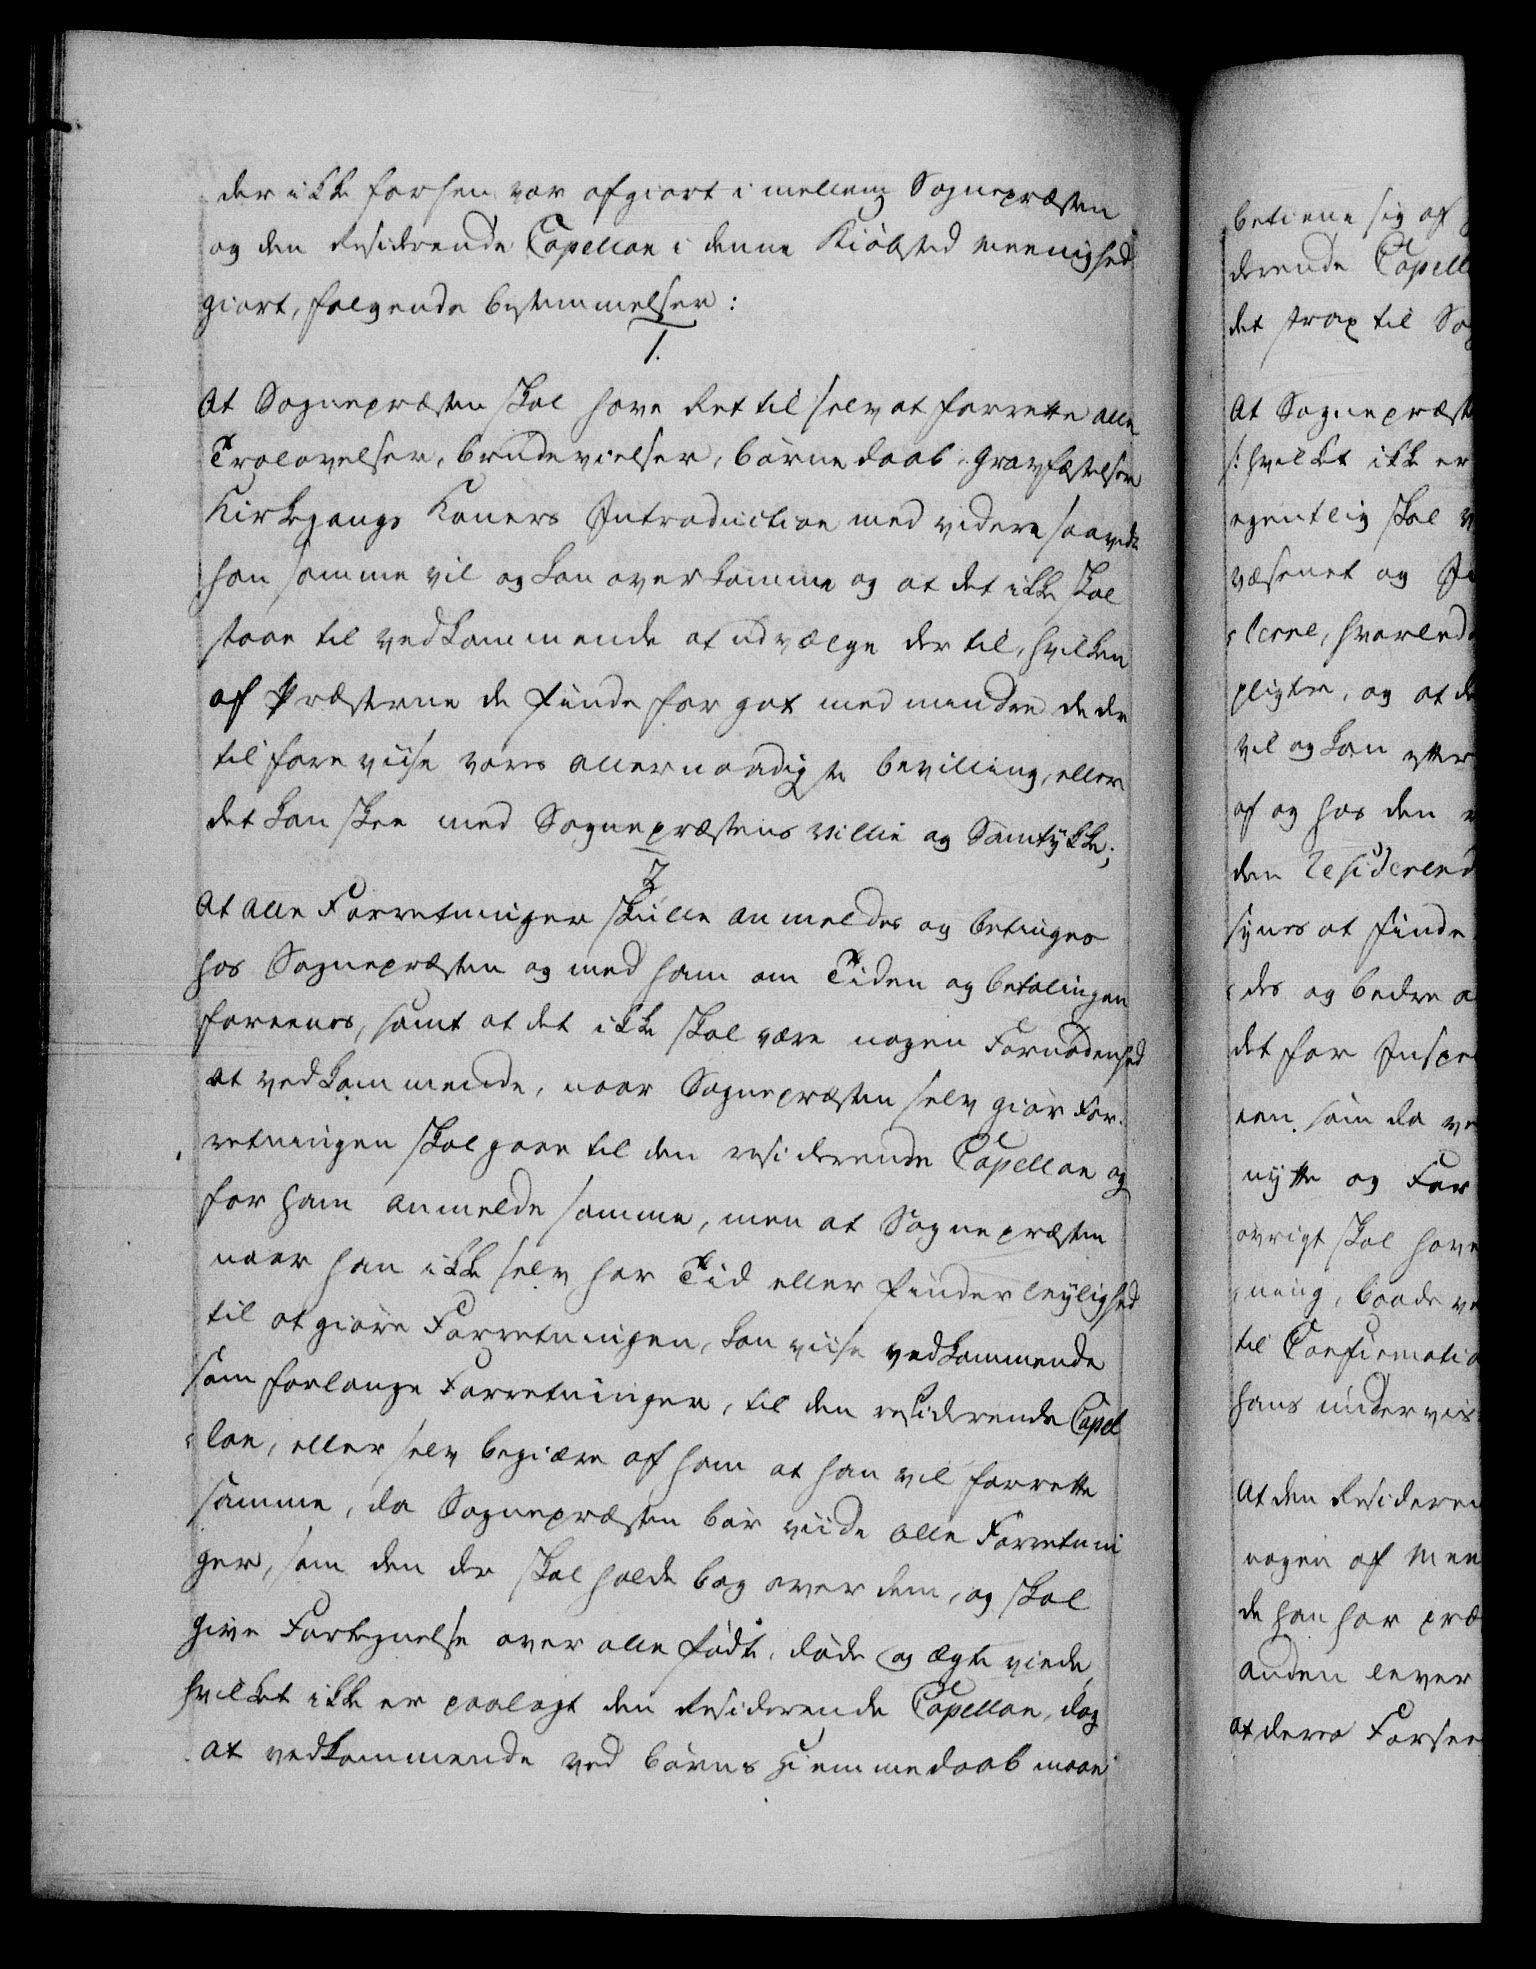 der ikke forhen var afgiort i mellem Sognepræsten
og den Residerende Capellan i denne Kiøbsted Meenighed
giort, følgende bestemmelser:
1.
At Sognepræsten skal have Ret til selv at forrette alle
Trolovelser, brudevielser, børne daab, Gravfæstelser
Kirkegangs Koners Introduction med videre saavidt
han samme vil og kan overkomme og at det ikke skal
staae til vedkommende at udvælge der til, hvilken
af Præsterne de finde for got med mindre de der
til foreviise vores allernaadigste bevilling, eller
det kan skee med Sognepræstens Villie og Samtykke;
2.
At alle Forretninger skulle anmeldes og betinges
hos Sognepræsten og med ham om Tiden og betalingen
foreenes, samt at det ikke skal være nogen Fornødenhed
at vedkommende, naar Sognepræsten selv giør For-
retningen skal gaae til den residerende Capellan og
for ham anmelde samme, men at Sognepræsten
naar han ikke selv har Tid eller finder leylighed
til at giøre Forretningen, kan viise vedkommende
som forlange Forretninger, til den residerende Capel
lan, eller selv begiære af ham at han vil forrette
samme, da Sognepræsten bør viide alle Forretnin
ger, som den der skal holde bog over dem, og skal
give Fortegnelse over alle fødte, døde og ægte viede
hvilket ikke er paalagt den Residerende Capellan, dog
at vedkommende ved børns Hiemmedaab maae
betiene sig af
derende Capell
det strax til Sog
At Sognepræst
/: hvilket ikke er
egentlig skal
væsenet og
hvorled
pligter, og at de
vil og kan
af og hos den
den Residerend
synes at finde
des og bedre
det for Inspe
een som da
nytte og For
øvrigt skal have
ning, baade
til Confirmatio
hans underviis
At den Resideren
nogen af Mee
de han har præ
anden lever
at deres Forsee